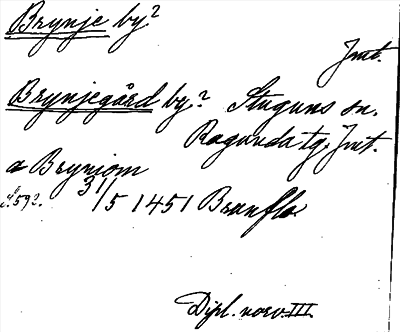 Brynje by?
Jmt.
Brynjegård by? Stuguns sn.
Ragunda tg. Jmt.
a Bryniom
S. 592. 31/5 1451 Brunflo
Dipl. norv. III.